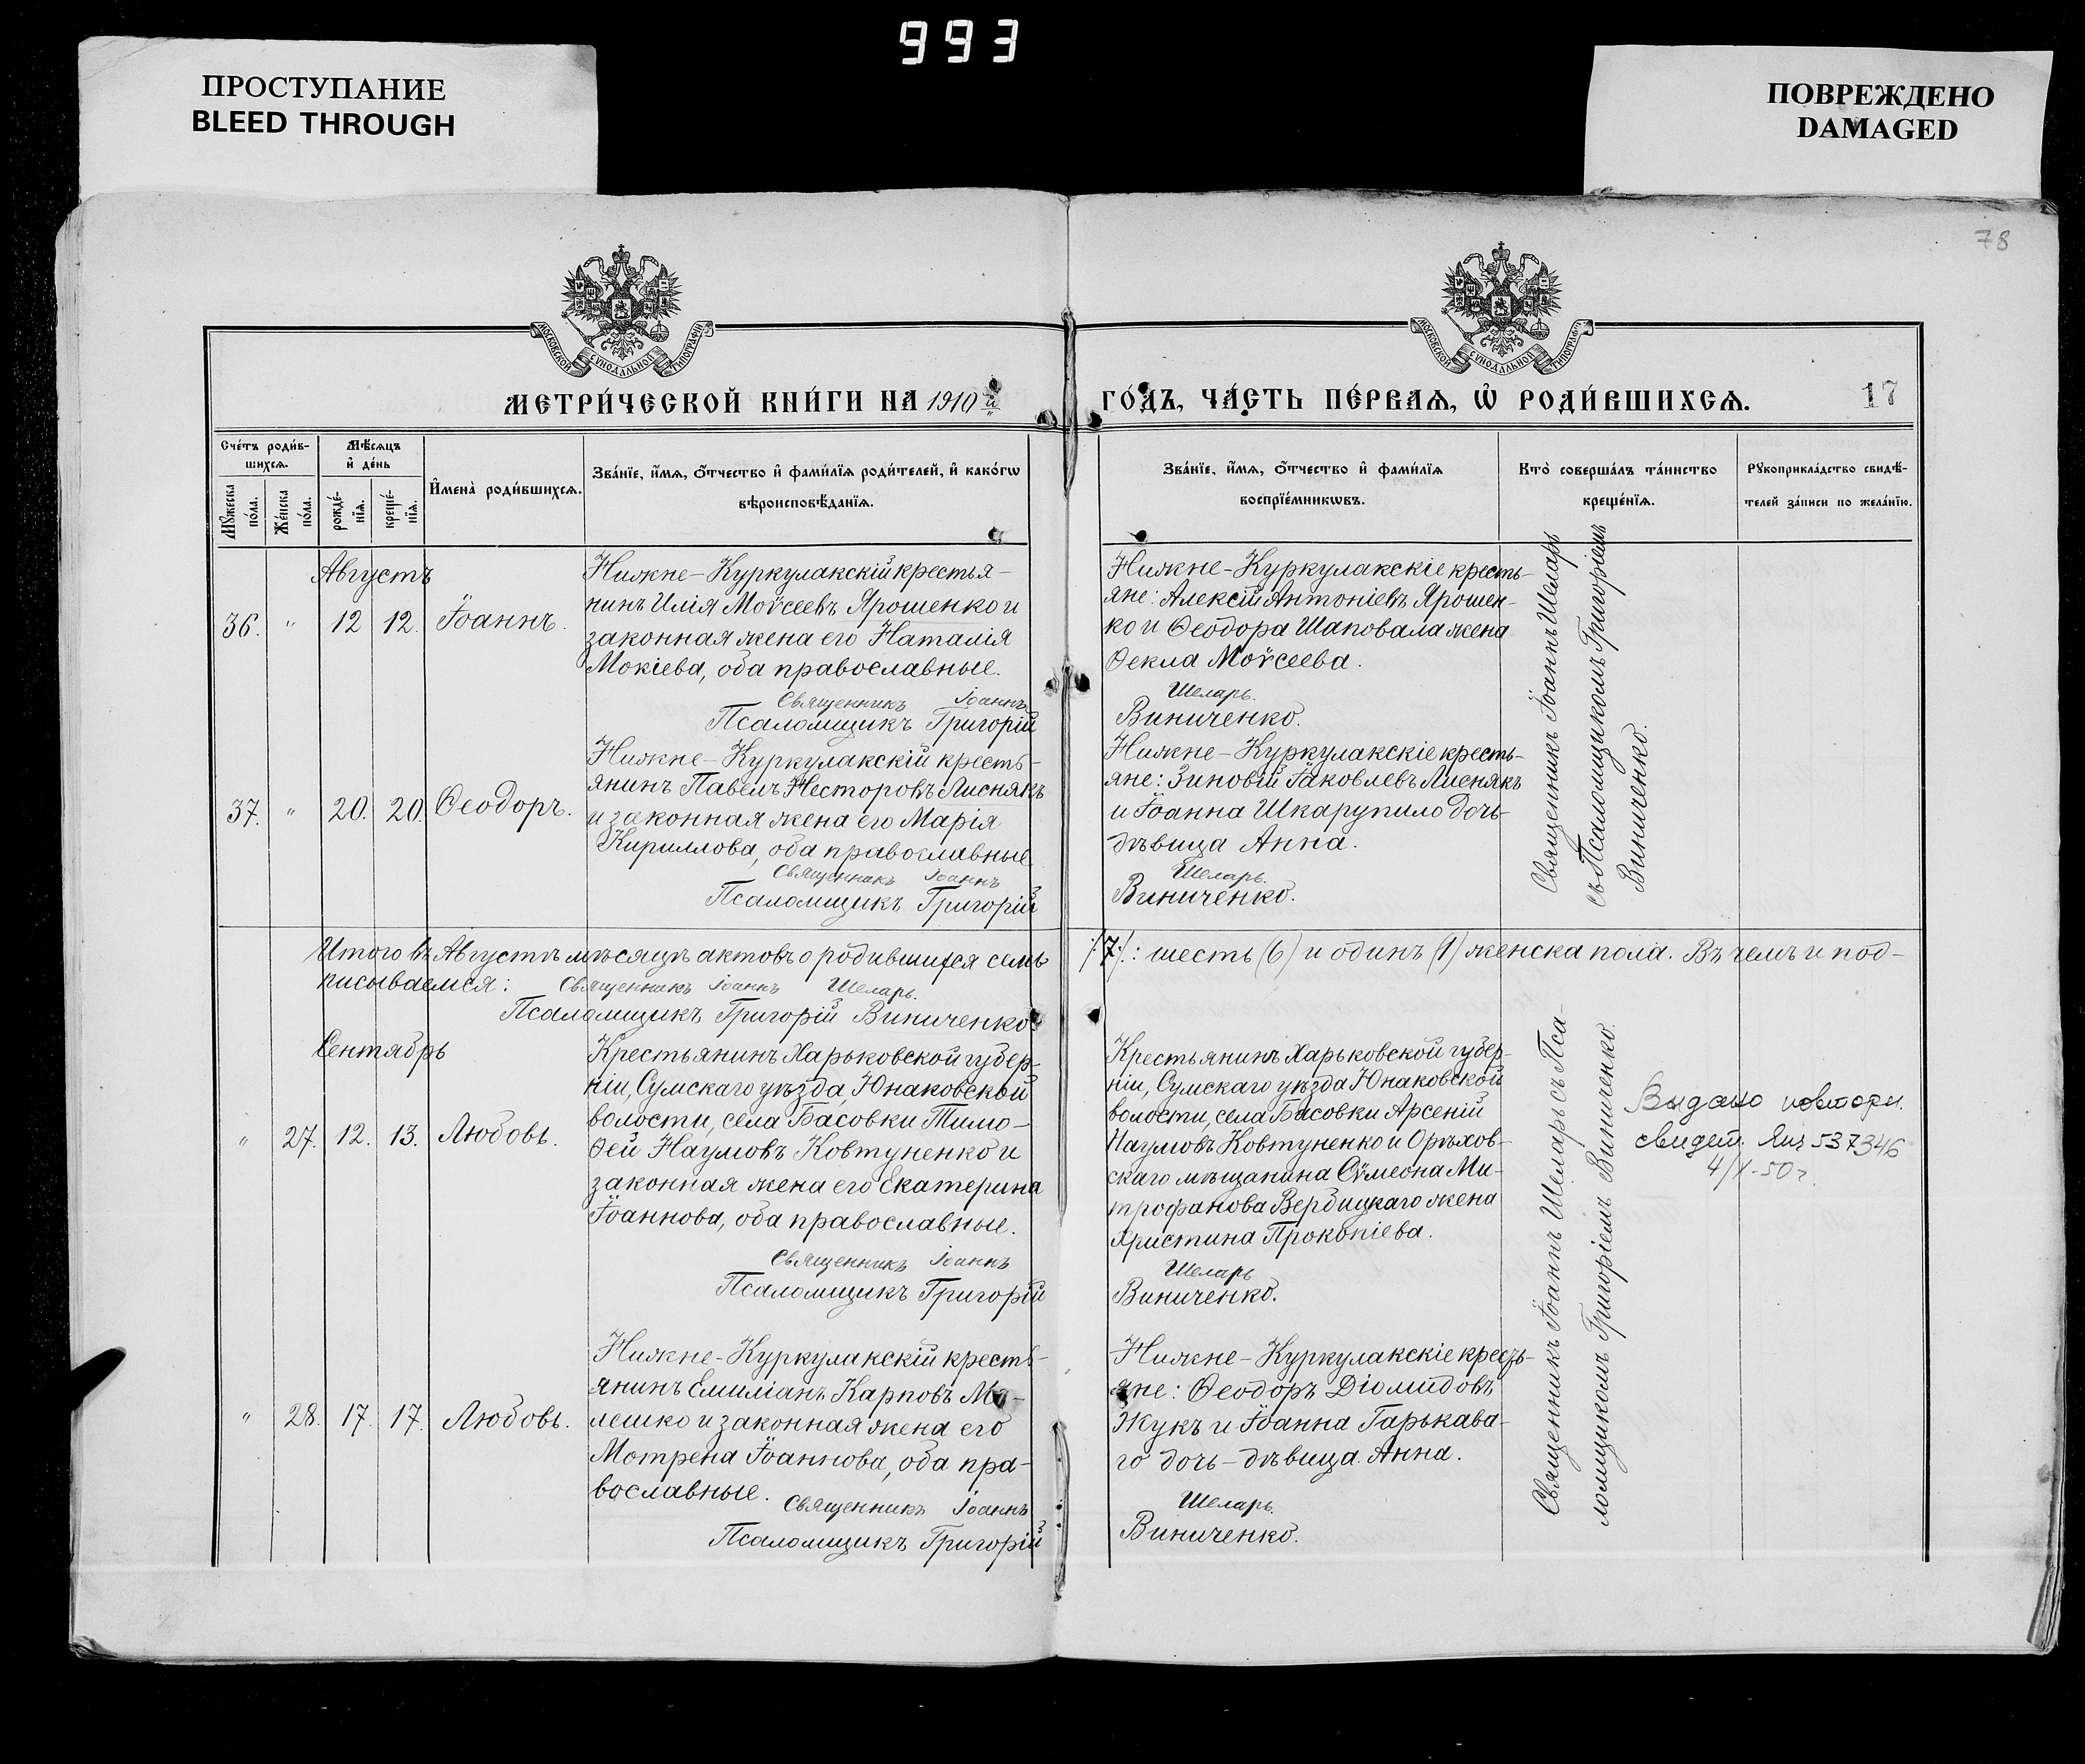 993
ПРОСТУПАНИЕ
BLEED THROUGH
ПОВРЕЖДЕНО
DAMAGED
78
МОСКОВСКОЙ СѴНОДАЛЬНОЙ ТИПОГРАФІИ
МОСКОВСКОЙ СѴНОДАЛЬНОЙ ТИПОГРАФІИ
МЕТРИ́ЧЕСКОЙ КНИ́ГИ НА 1910 й
ГО́ДЪ, ЧА́СТЬ ПЕ́РВАѦ, Ѡ҆ РОДИ́ВШИХСѦ.
17
Сче́тъ роди́в-
шихсѧ.
Мꙋжеска по́ла.
Же́нска по́ла.
Мѣ́сѧцъ
и҆ де́нь
рожде́-
нїѧ.
креще́-
нїѧ.
И҆мена̀ роди́вшихсѧ.
Зва́нїе, и҆́мѧ, ѻ҆́тчество и҆ фами́лїѧ роди́телей, и҆ како́гѡ
вѣроисповѣ́данїѧ.
Зва́нїе, и҆́мѧ, ѻ҆́тчество и҆ фами́лїѧ
воспрїе́мникѡвъ.
Кто̀ соверша́лъ та́инство
креще́нїѧ.
Рꙋкоприкла́дство свидѣ́-
телей за́писи по жела́нїю.
Августъ
36. " 12 12. Іоаннъ.
Нижне-Куркулакскій крестья-
нинъ Илія Моѵсеевъ Ярошенко и
законная жена его Наталія
Мокіева, оба православные.
Священникъ Іоаннъ
Псаломщикъ Григорій
Нижне-Куркулакскіе кресть-
яне: Алексій Антоніевъ Ярошен-
ко и Ѳеодора Шаповала жена
Ѳекла Моѵсеева.
Шеларь.
Виниченко.
37. " 20. 20. Ѳеодоръ.
Нижне-Куркулакскій кресть-
янинъ Павелъ Несторовъ Лиснякъ
и законная жена его Марія
Кириллова, оба православные
Священникъ Іоаннъ
Псаломщикъ Григорій
Нижне-Куркулакскіе кресть-
яне: Зиновій Іаковлевъ Лиснякъ
и Іоанна Шкарупило дочь-
дѣвица Анна.
Шеларь.
Виниченко.
Священникъ Іоаннъ Шеларь
съ Псаломщикомъ Григоріемъ
Виниченко.
Итого въ Августѣ мѣсяцѣ актовъ о родившихся семь
/:7:/: шесть (6) и одинъ (1) женска пола. Въ чемъ и под-
писываемся: Священникъ Іоаннъ Шеларь.
Псаломщикъ Григорій Виниченко
Сентябрь
" 27. 12. 13. Любовь.
Крестьянинъ Харьковской губер-
ніи, Сумскаго уѣзда, Юнаковской
волости, села Басовки Тимо-
ѳей Наумовъ Ковтуненко и
законная жена его Екатерина
Іоаннова, оба православные.
Священникъ Іоаннъ
Псаломщикъ Григорій
Крестьянинъ Харьковской губер-
ніи, Сумскаго уѣзда Юнаковской
волости, села Басовки Арсеній
Наумовъ Ковтуненко и Орѣхов-
скаго мѣщанина Сѵмеона Ми-
трофанова Вербицкаго жена
Христина Прокопіева.
Шеларь
Виниченко.
Выдано повторн.
свидет. 537346
4/I-50 г.
" 28. 17. 17. Любовь.
Нижне-Куркулакскій кресть-
янинъ Емиліанъ Карповъ Ма-
лешко и законная жена его
Мотрена Іоаннова, оба пра-
вославные.
Священникъ Іоаннъ
Псаломщикъ Григорій
Нижне-Куркулакскіе кресть-
яне: Ѳеодоръ Діомидовъ
Жукъ и Іоанна Гарькава-
го дочь-дѣвица Анна.
Шеларь.
Виниченко.
Священникъ Іоаннъ Шеларь съ Пса-
ломщикомъ Григоріемъ Виниченко.